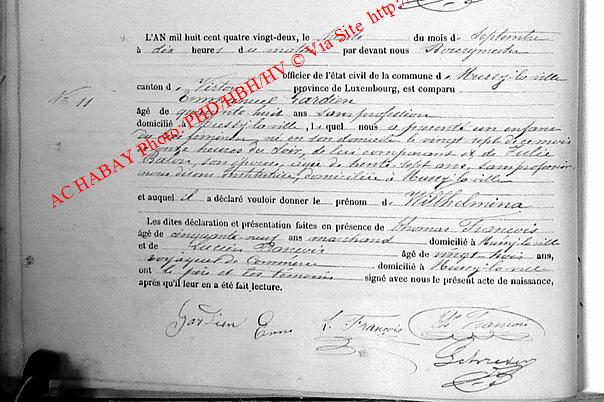 L'AN mil huit cent quatre vingt-deux, le trente du mois de Septembre
à dix heures du matin par devant nous Bourgmestre
officier de l'état civil de la commune de Mussy-la-ville
canton de Virton province de Luxembourg, est comparu
N° 11 Emmanuel Gardien
âgé de quarante huit ans sans profession
domicilié à Mussy-la-ville, lequel nous a présenté un enfant
du sexe féminin né en son domicile le vingt sept de ce mois
à onze heures du soir, de lui comparant et de Julie
son épouse, âgée de trente sept ans, sans profession
nous disons institutrice, domiciliée à Mussy-la-ville
et auquel il a déclaré vouloir donner le prénom de Willhelmina
Les dites déclaration et présentation faites en présence de Thomas François
âgé de cinquante-neuf ans marchand domicilié à Mussy-la-ville
et de Lucien François âgé de vingt trois ans,
voyageur de Commerce domicilié à Mussy-la-ville
ont le père et les témoins signé avec nous le présent acte de naissance,
après qu'il leur en a été fait lecture.
Gardien Emm L. François Th François
AC HABAY Photo. PHD/HBH/HV © Via Site http://